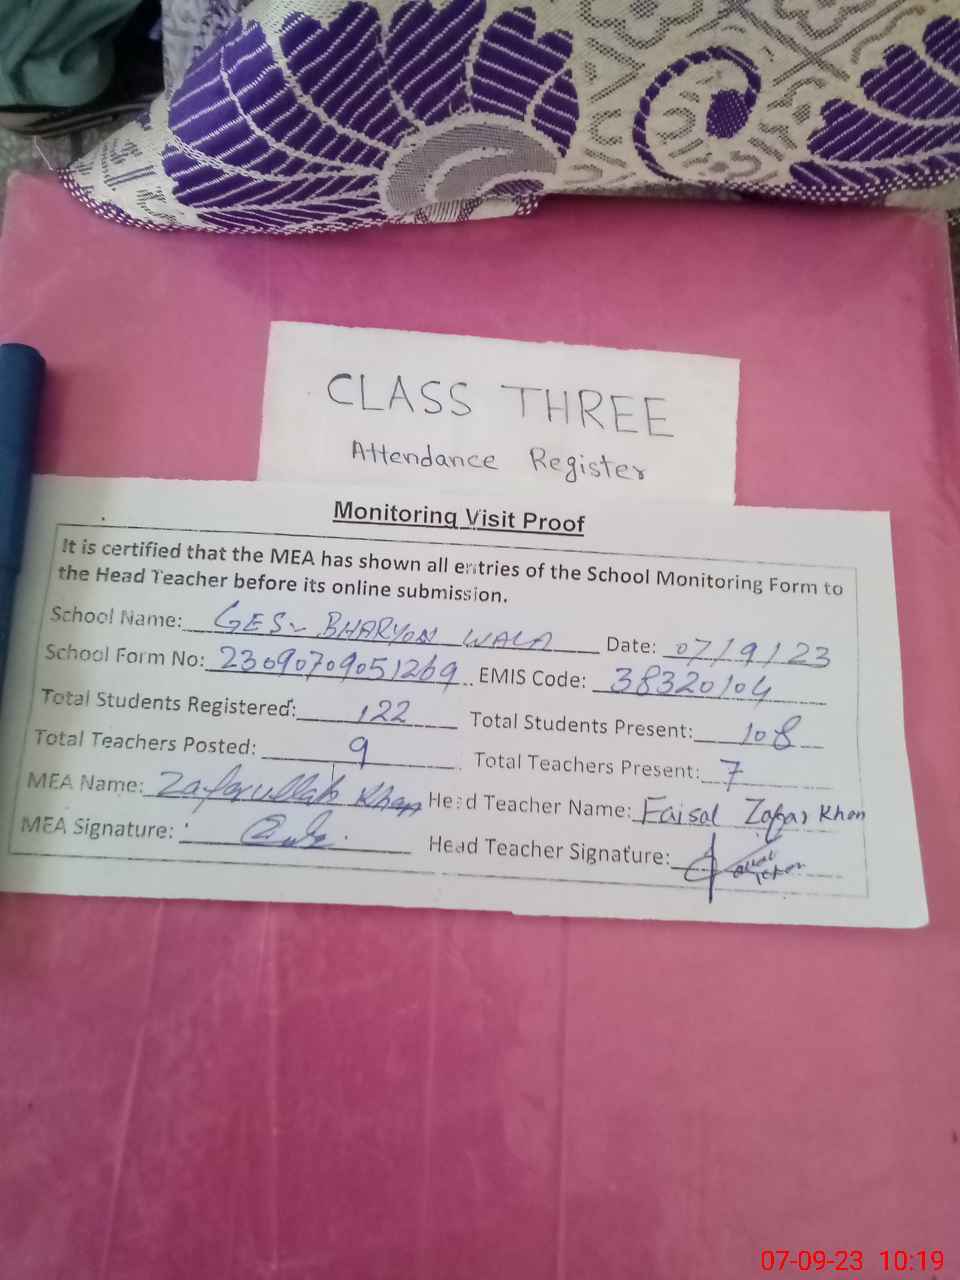 CLASS THREE
Attendance Register
Monitoring Visit Proof
It is certified that the MEA has shown all entries of the School Monitoring Form to
the Head Teacher before its online submission.
School Name: GES BHARYON WALA Date: 07/9/23
School Form No: 23090709051269 EMIS Code: 38320104
Total Students Registered: 122 Total Students Present: 108
Total Teachers Posted: 9 Total Teachers Present: 7
MEA Name: Zafarullah Khan Head Teacher Name: Faisal Zafar Khan
MEA Signature: Head Teacher Signature:
07-09-23 10:19